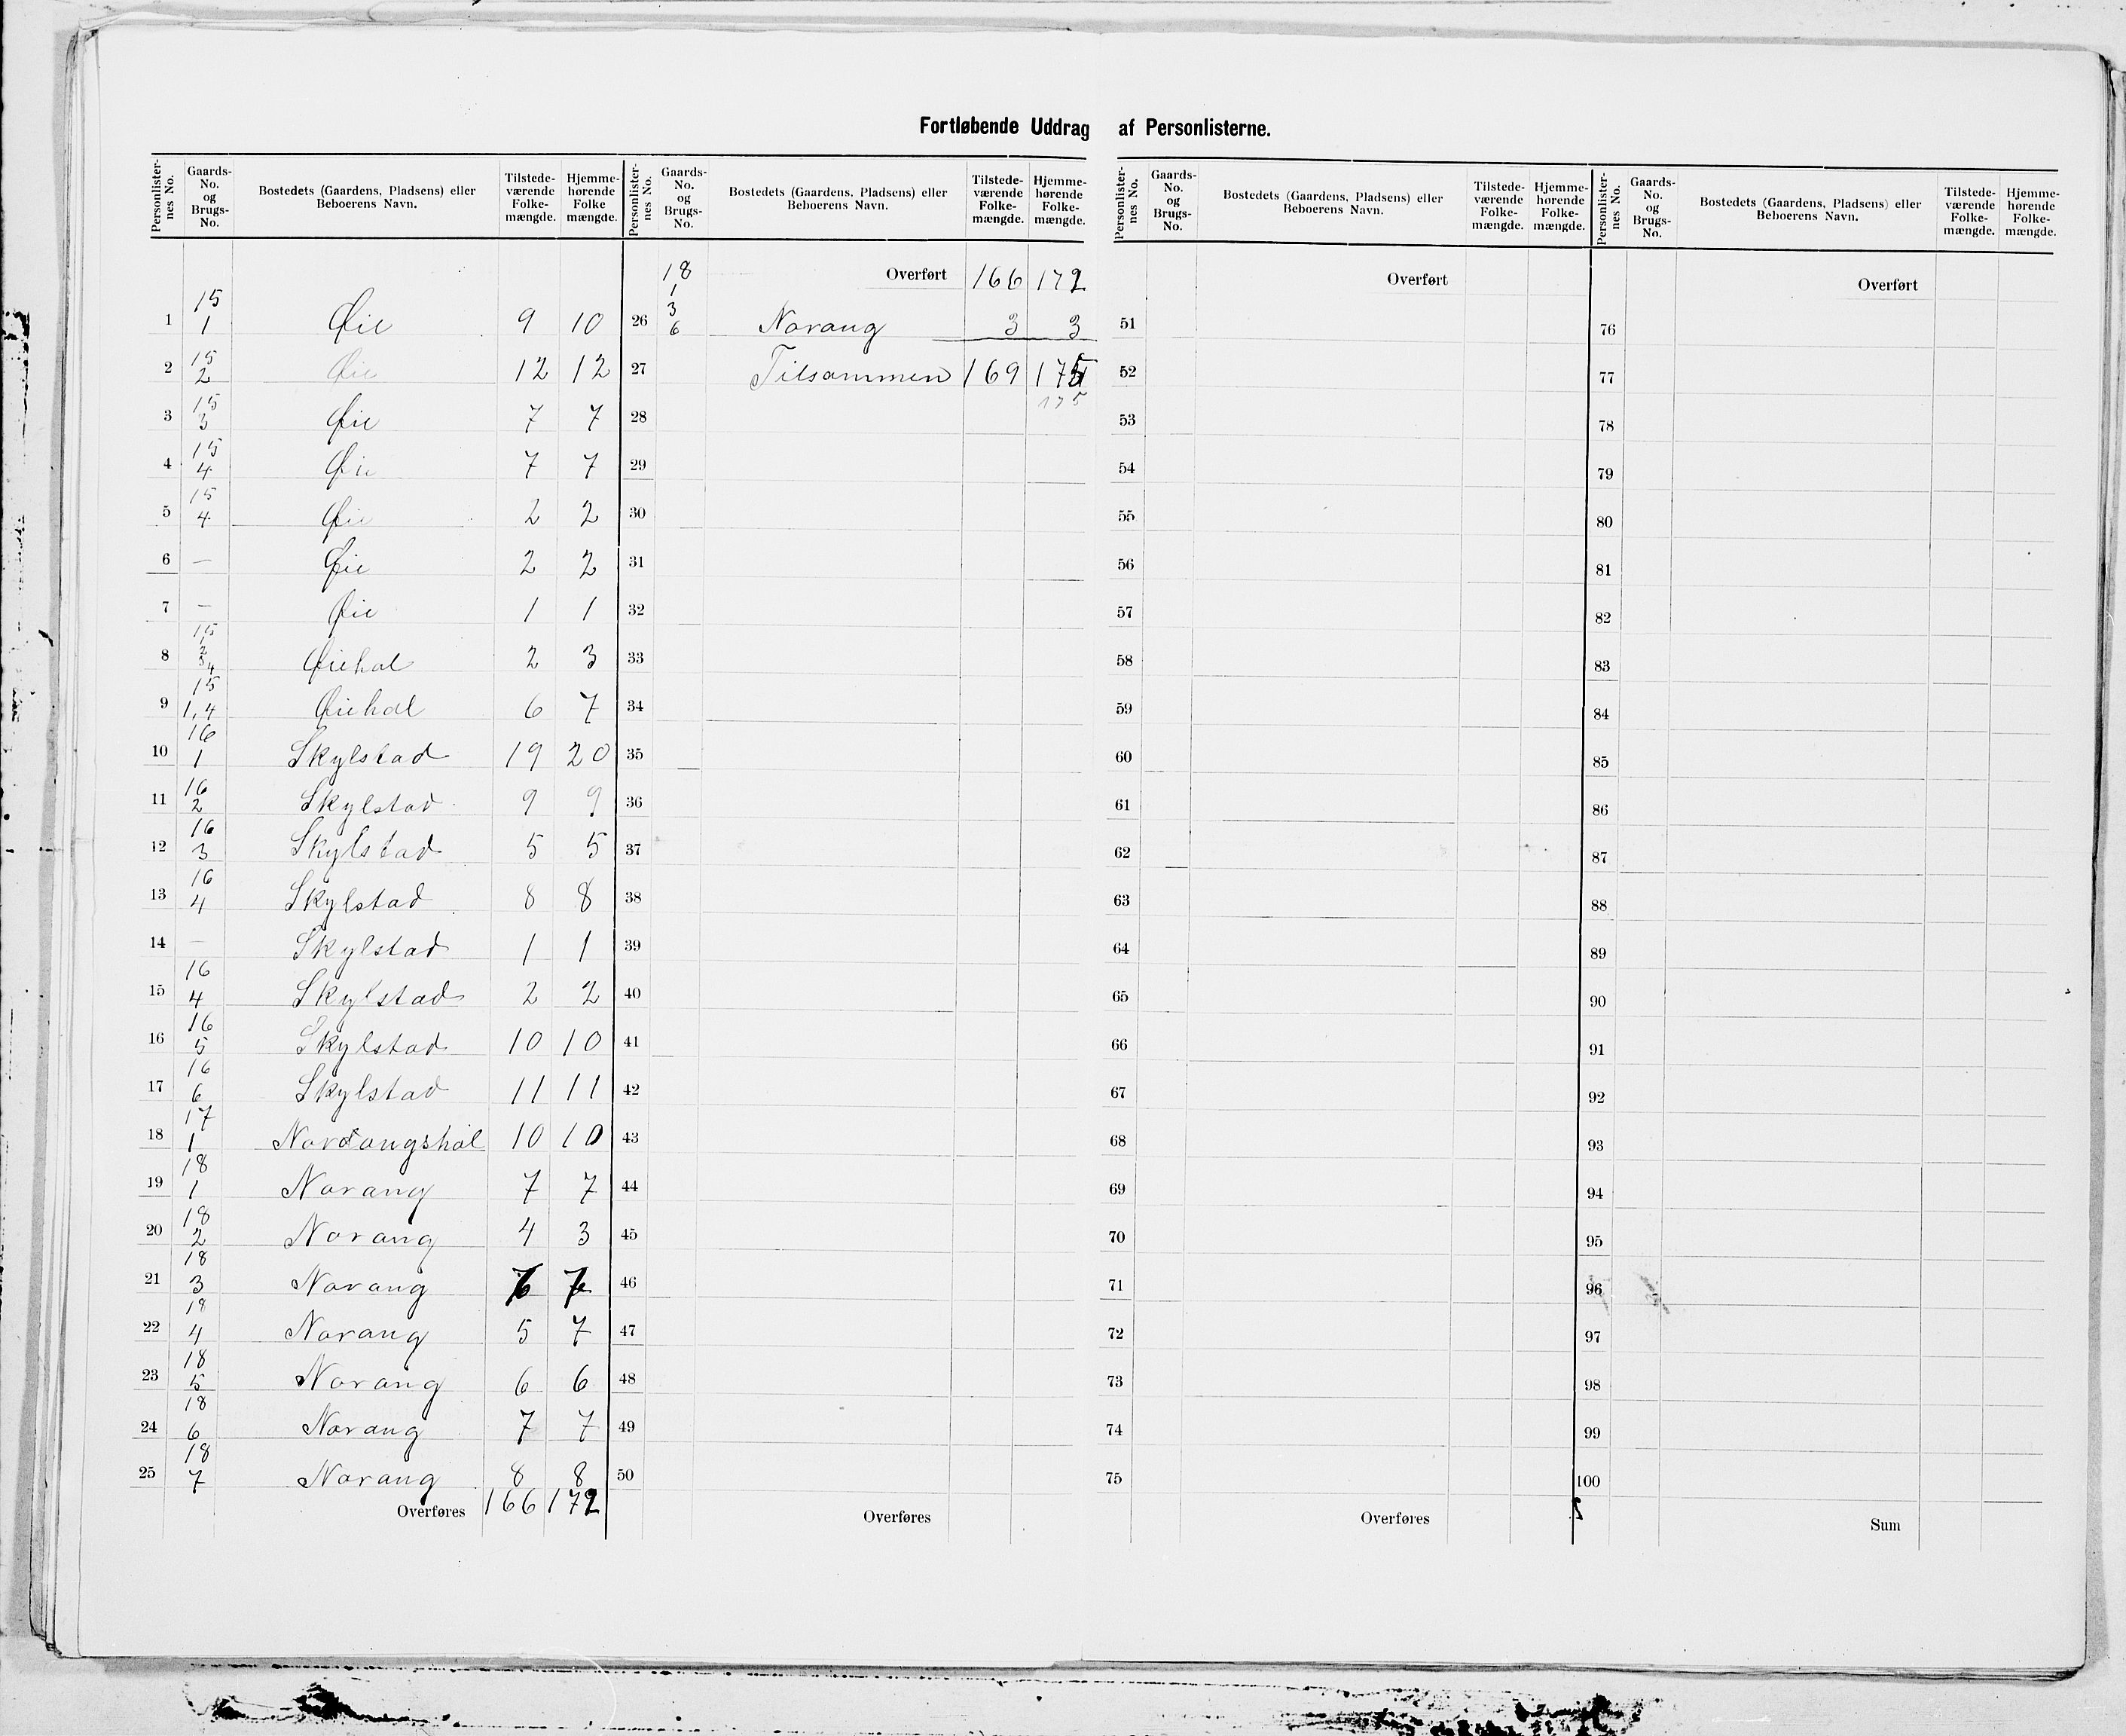 Fortløbende Uddrag af Personlisterne.
Personlister-nes No. Gaards-No. og Brugs-No. Bostedets (Gaardens, Pladsens) eller Beboerens Navn. Tilstede-værende Folke-mængde. Hjemme-hørende Folke mængde.
1 15 1 Øie 9 10
2 15 2 Øie 12 12
3 15 3 Øie 7 7
4 15 4 Øie 7 7
5 15 4 Øie 2 2
6 — Øie 2 2
7 — Øie 1 1
8 15 2 3 4 Øiehol 2 3
9 15 1,4 Øiehol 6 7
10 16 1 Skylstad 19 20
11 16 2 Skylstad 9 9
12 16 3 Skylstad 5 5
13 16 4 Skylstad 8 8
14 — Skylstad 1 1
15 16 4 Skylstad 2 2
16 16 5 Skylstad 10 10
17 16 6 Skylstad 11 11
18 17 1 Nordangshol 10 10
19 18 1 Norang 7 7
20 18 2 Norang 4 3
21 18 3 Norang 6 6
22 18 4 Norang 5 7
23 18 5 Norang 6 6
24 18 6 Norang 7 7
25 18 7 Norang 8 8
Overføres 166 172
Personlister-nes No. Gaards-No. og Brugs-No. Bostedets (Gaardens, Pladsens) eller Beboerens Navn. Tilstede-værende Folke-mængde. Hjemme-hørende Folke-mængde.
Overført 166 172
26 18 1 3 6 Norang 3 3
27 Tilsammen 169 175
175
28
29
30
31
32
33
34
35
36
37
38
39
40
41
42
43
44
45
46
47
48
49
50
Overføres
Personlister-nes No. Gaards-No. og Brugs-No. Bostedets (Gaardens, Pladsens) eller Beboerens Navn. Tilstede-værende Folke-mængde. Hjemme-hørende Folke-mængde.
Overført
51
52
53
54
55
56
57
58
59
60
61
62
63
64
65
66
67
68
69
70
71
72
73
74
75
Overføres
Personlister-nes No. Gaards-No. og Brugs-No. Bostedets (Gaardens, Pladsens) eller Beboerens Navn. Tilstede-værende Folke-mængde. Hjemme-hørende Folke-mængde.
Overført
76
77
78
79
80
81
82
83
84
85
86
87
88
89
90
91
92
93
94
95
96
97
98
99
100
Sum